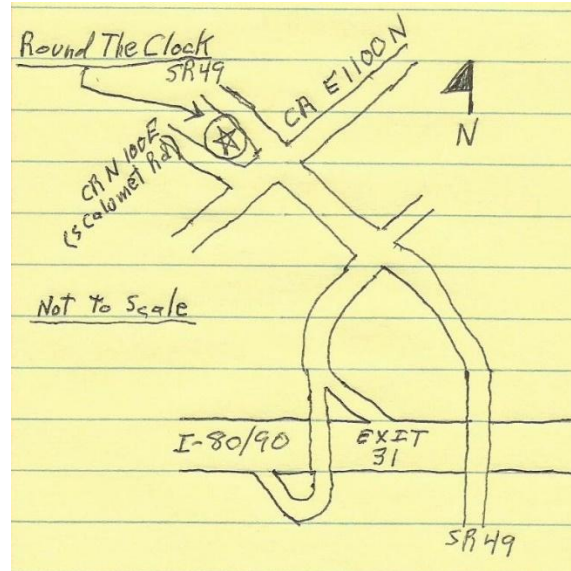 Round The Clock
SR49
CR E1100N
N
CR N 100E
(S Calumet Rd)
Not to Scale
I-80/90
EXIT
31
SR 49